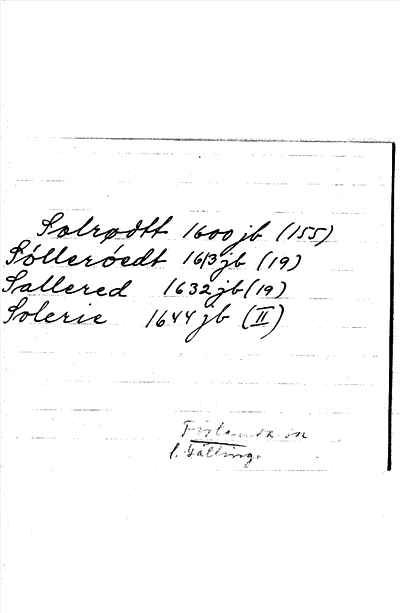 Solrødtt 1600 jb (155)
Sölleröedt 1613 jb (19)
Sallered 1632 jb (19)
Solerie 1644 jb (II)
l. Gälling.